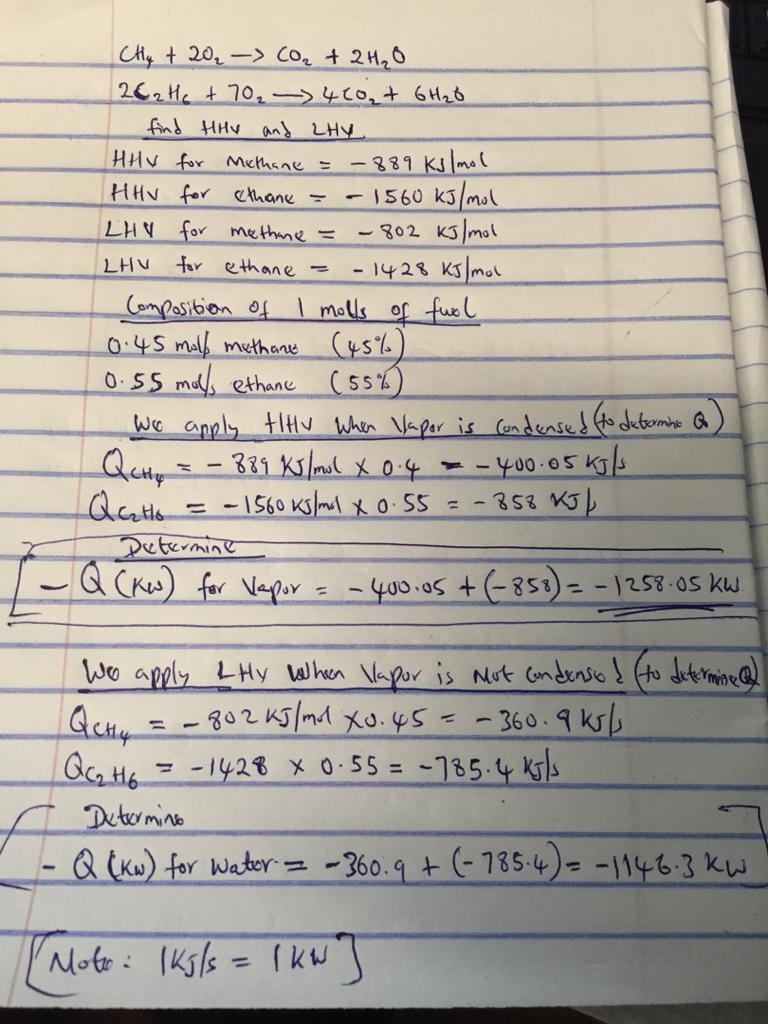 CH₄ + 2O₂ → CO₂ + 2H₂O
2C₂H₆ + 7O₂ → 4CO₂ + 6H₂O
find HHV and LHV
HHV for Methane = -889 KJ/mol
HHV for ethane = -1560 KJ/mol
LHV for methane = -802 KJ/mol
LHV for ethane = -1428 KJ/mol
Composition of 1 mol/s of fuel
0.45 mol/s methane (45%)
0.55 mol/s ethane (55%)
We apply HHV When Vapor is Condensed (to determine Q)
QCH₄ = -889 KJ/mol x 0.4 = -400.05 KJ/s
QC₂H₆ = -1560 KJ/mol x 0.55 = -858 KJ/s
Determine
- Q (KW) for Vapor = -400.05 + (-858) = -1258.05 KW
We apply LHV When Vapor is Not Condensed (to determine Q)
QCH₄ = -802 KJ/mol x 0.45 = -360.9 KJ/s
QC₂H₆ = -1428 x 0.55 = -785.4 KJ/s
Determine
- Q (KW) for water = -360.9 + (-785.4) = -1146.3 KW
[Note: 1KJ/s = 1KW]